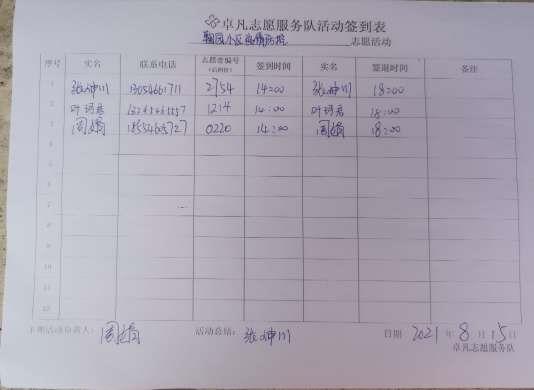 卓凡志愿服务队活动签到表
鞠园小区疫情防控 志愿活动
序号 实名 联系电话 志愿者编号（后四位） 签到时间 实名 签退时间 备注
1 张坤川 13054661711 2754 14:00 张坤川 18:00
2 叶 1214 14:00 叶 18:00
3 周娟 18554605727 0220 14:00 周娟 18:00
4
5
6
7
8
9
10
11
12
周娟 活动总结： 张坤川 日期 2021 年 8 月 15 日
卓凡志愿服务队